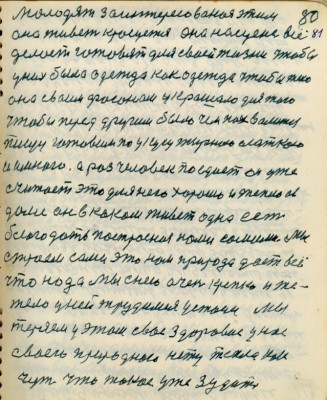 80
молодяж заинтересованая этим
она живет красуется она нацелена всё 81
делает готовят для своей жизни чтобы
у них была одежда как одежда чтобы т
она своим фасоном украшало для того
чтобы перед другим было чем похвалитца
пищу готовим по вкусу жырного сладкого
и много. а раз человек поедает он уже
считает это для него хорошо и тепло в
доме он в каком живет одна есть
благодать построеная нами самими Мы
строем сами это нам природа дает всё
что нада Мы с нею очен крепко и тя-
жело у ней трудимся устаем Мы
теряем у этом свое Здоровие у нас
своего природного нету тепла как
чуть что такое уже Зудить